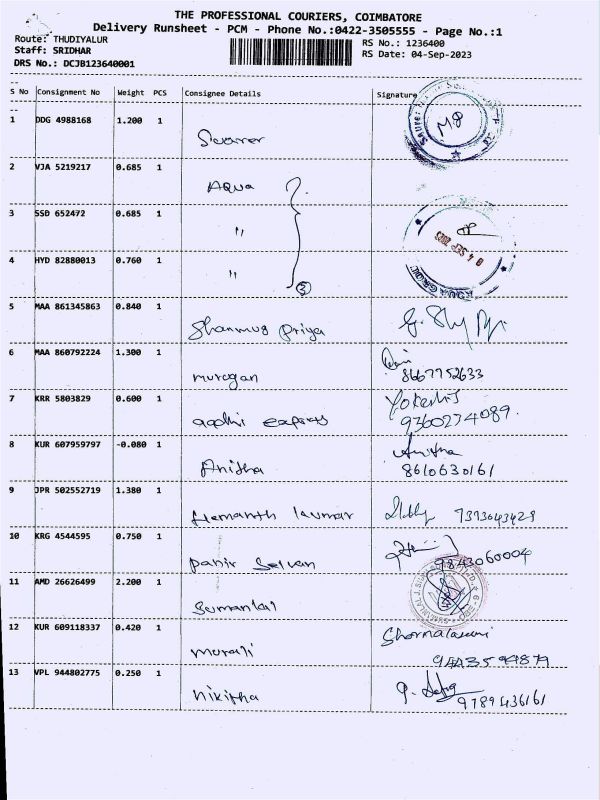 THE PROFESSIONAL COURIERS, COIMBATORE
Delivery Runsheet - PCM - Phone No.:0422-3505555 - Page No.:1
Route: THUDIYALUR RS No.: 1236400
Staff: SRIDHAR RS Date: 04-Sep-2023
DRS No.: DCJB123640001
S No Consignment No Weight PCS Consignee Details Signature
1 DDG 4988168 1.200 1
2 VJA 5219217 0.685 1 Aqua
3 SSD 652472 0.685 1 "
4 HYD 82880013 0.760 1 "
3
04 SEP 2023
5 MAA 861345863 0.840 1 Shanmug Priya
6 MAA 860792224 1.300 1 murugan
8667752633
7 KRR 5803829 0.600 1 aadhi express
9360274089.
8 KUR 607959797 -0.080 1 Anitha Anitha
8610630161
9 JPR 502552719 1.380 1 Hemanth kumar 7373643429
10 KRG 4544595 0.750 1 Panir Selvan 9843060004
11 AMD 26626499 2.200 1 Sumanlal
12 KUR 609118337 0.420 1 murali
9443599879
13 VPL 944802775 0.250 1 Nikitha 9789436161